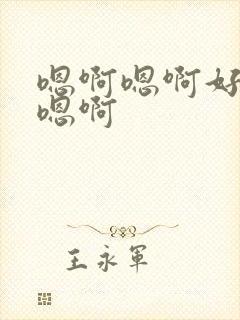 嗯啊嗯啊好
嗯啊
王永军